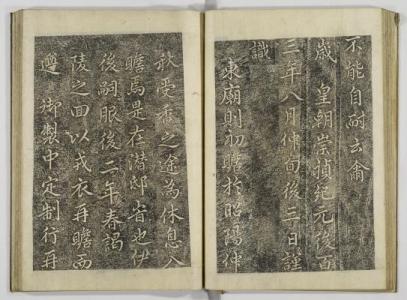 不能自耐云爾
歲 皇朝崇禎紀元後百
三年八月仲旬後三日謹
識
東廟則初瞻於昭陽仲
秋受香之途為休息入
瞻焉是在潛邸省也伊
後嗣服後二年春謁
陵之回以戎衣再瞻而
遵 御製中定制行再